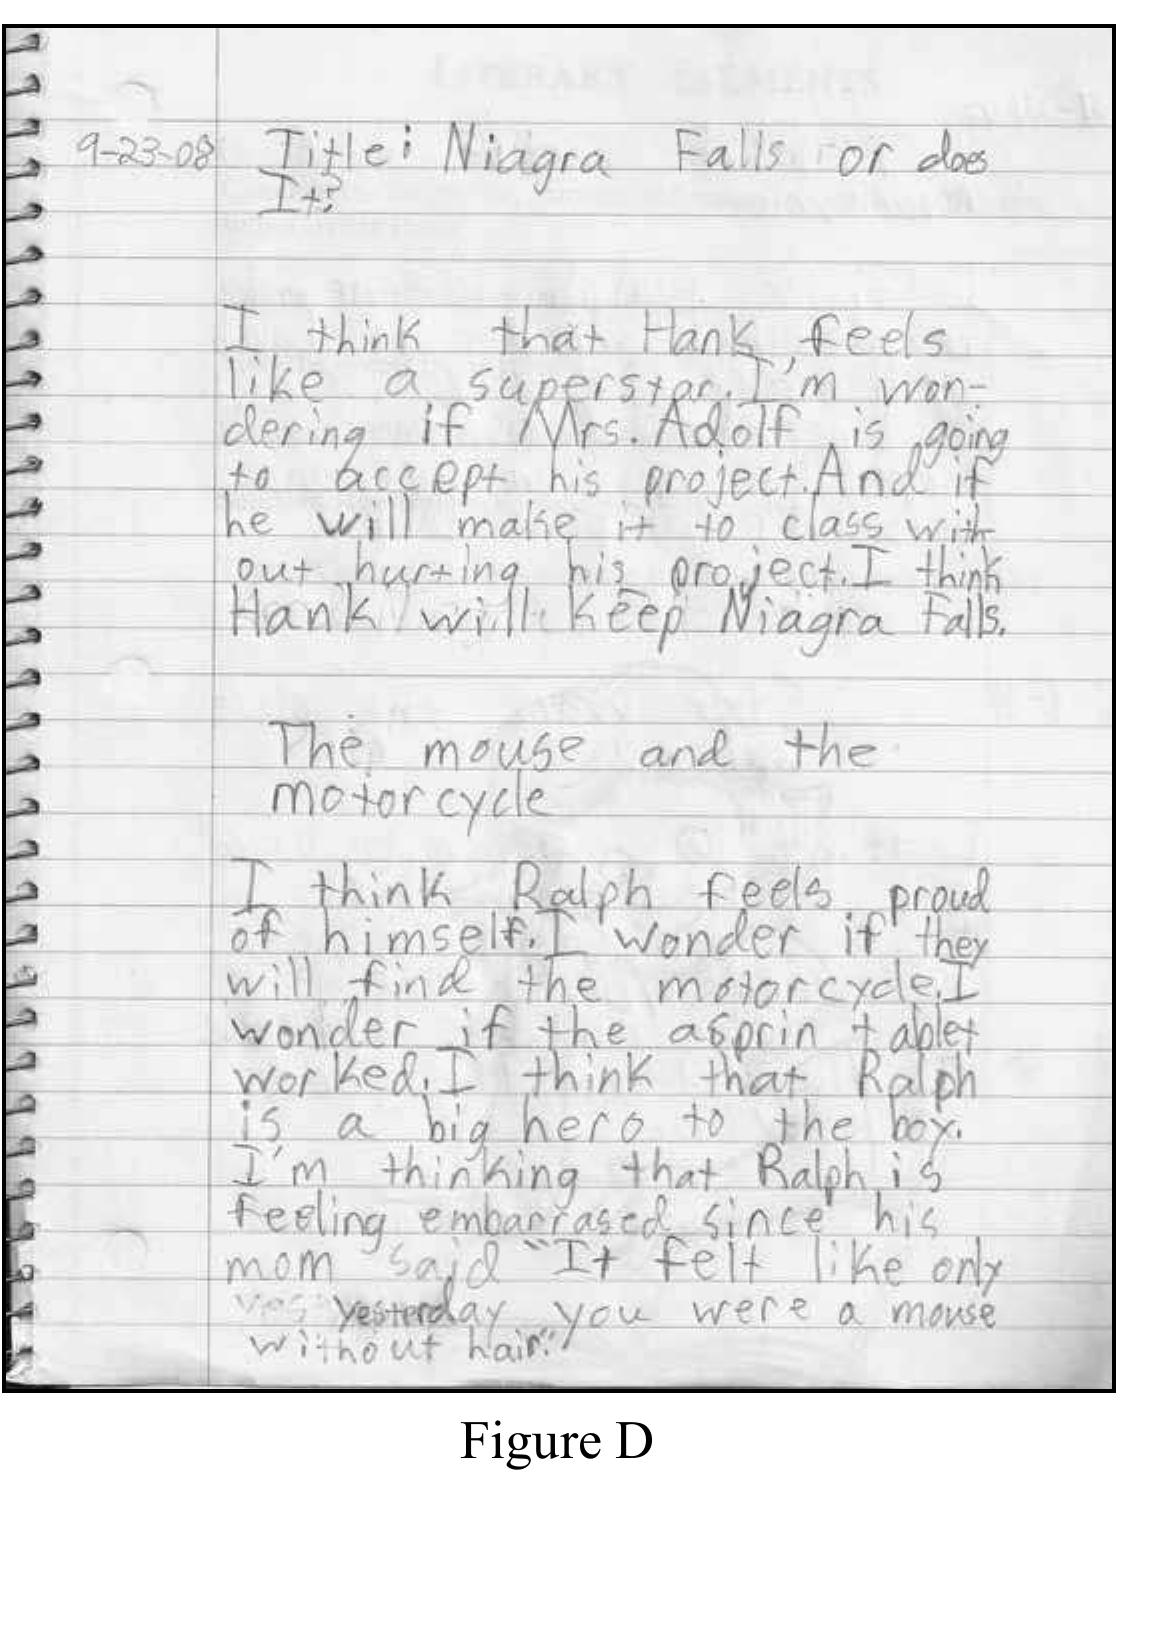 9-23-08 Title: Niagra Falls or does
It?
I think that Hank feels
like a superstar. I'm won-
dering if Mrs. Adolf is going
to accept his project. And if
he will make it to class with
out hurting his project. I think
Hank will keep Niagra Falls.
The mouse and the
motorcycle
I think Ralph feels proud
of himself. I wonder if they
will find the motorcycle. I
wonder if the asprin tablet
worked. I think that Ralph
is a big hero to the boy.
I'm thinking that Ralph is
feeling embarrased since his
mom said "It felt like only
yesterday you were a mouse
without hair."
Figure D